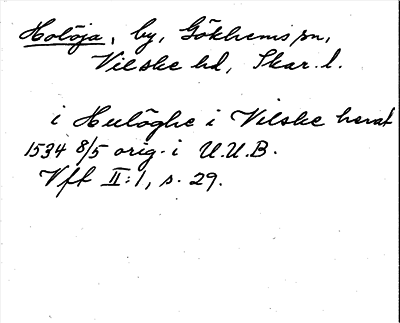 Holöja, by, Gökhems sn,
Vilske hd, Skar. l.
i Hulöghe i Vilske herat
1534 8/5 orig. i U.U.B.
Vft II:1, s. 29.